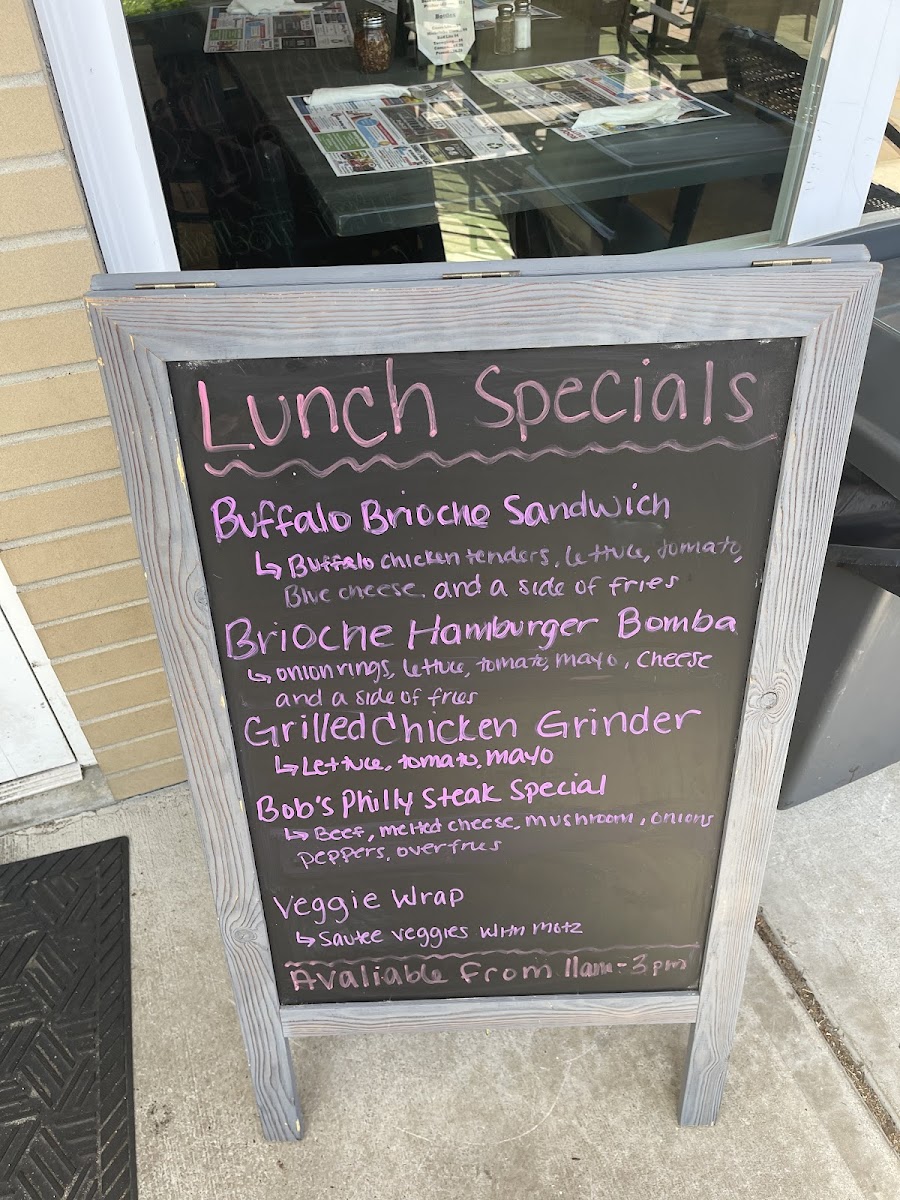 Lunch Specials
Buffalo Brioche Sandwich
↳ Buffalo chicken tenders, lettuce, tomato,
Blue cheese, and a side of fries
Brioche Hamburger Bomba
↳ onion rings, lettuce, tomato, mayo, cheese
and a side of fries
Grilled Chicken Grinder
↳ Lettuce, tomato, mayo
Bob's Philly Steak Special
↳ Beef, melted cheese, mushroom, onions
peppers, over fries
Veggie Wrap
↳ Sautee veggies with motz
Avaliable From 11am-3pm